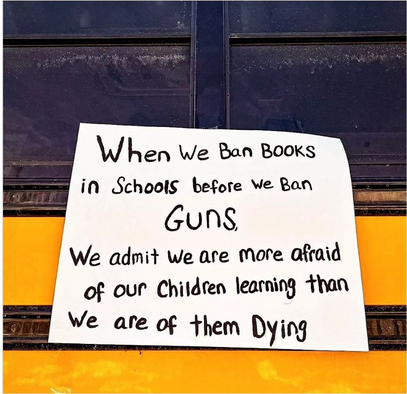 When We Ban BOOKS
in Schools before we Ban
GUNS,
We admit we are more afraid
of our Children learning than
We are of them Dying